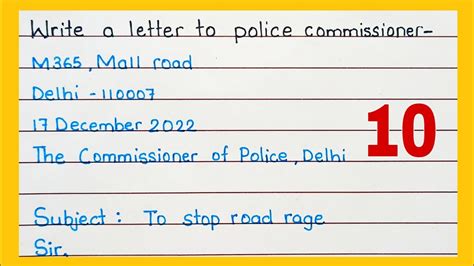 Write a letter to police commissioner-
M365, Mall road
Delhi - 110007
17 December 2022
10
The Commissioner of Police, Delhi
Subject : To stop road rage
Sir,